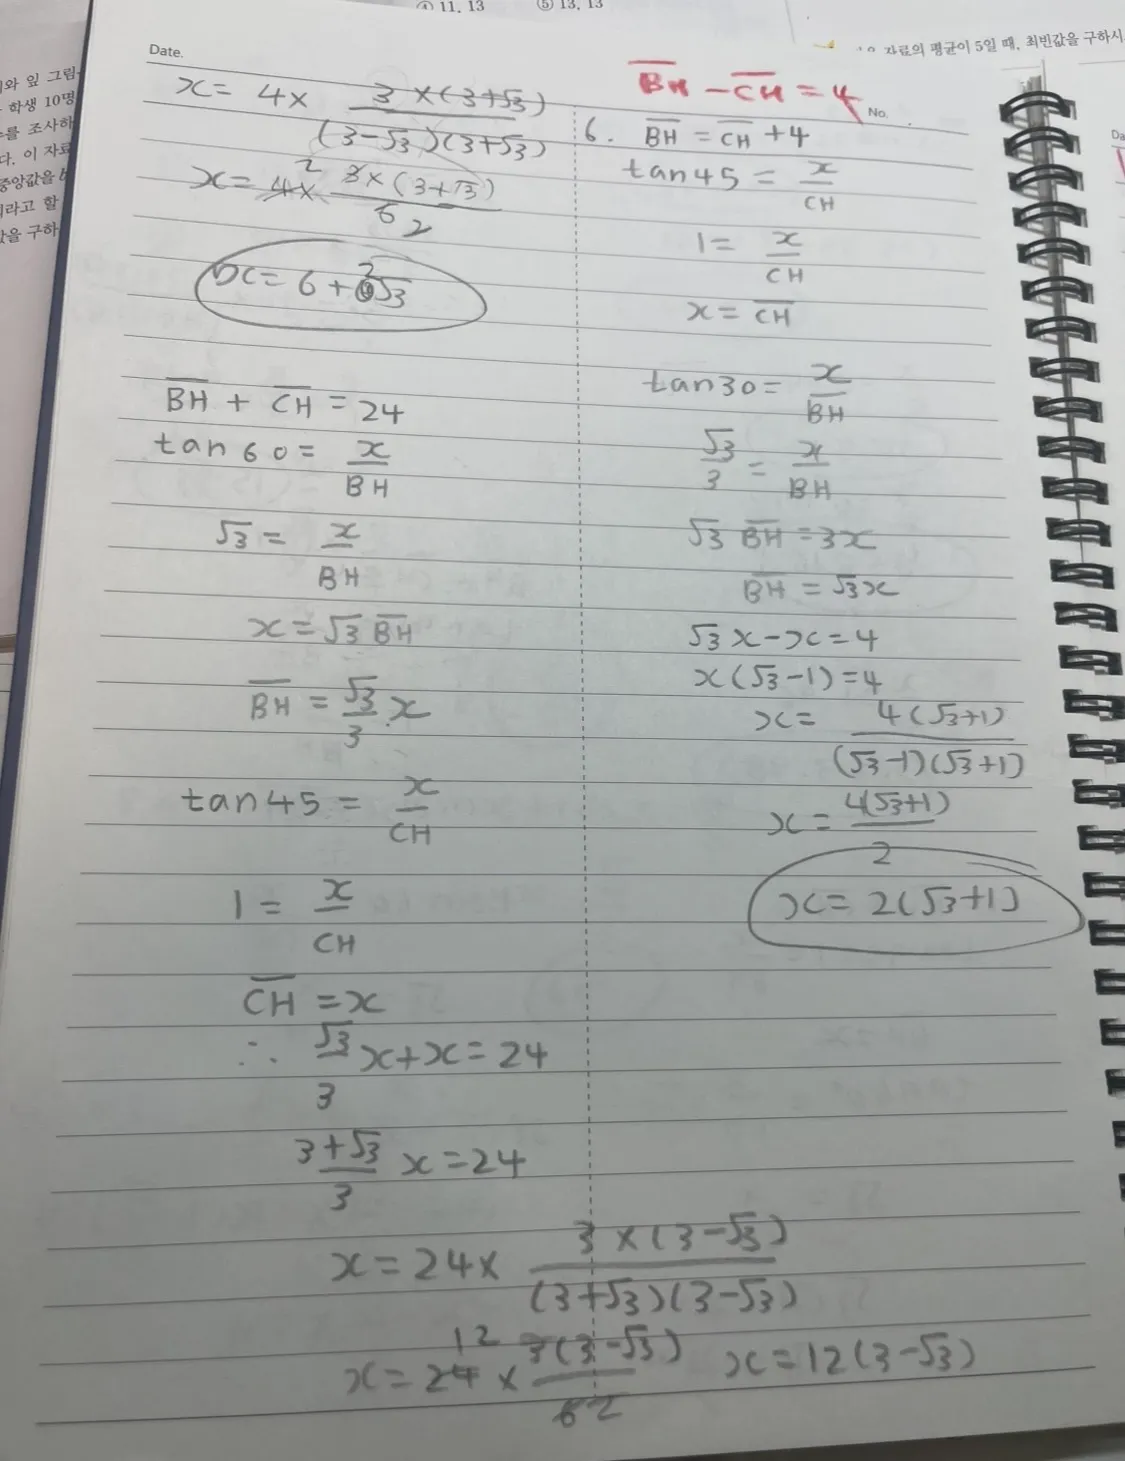 ④ 11, 13 ⑤ 13, 13
자료의 평균이 5일 때, 최빈값을 구하시
와 잎 그림
학생 10명
를 조사하
다. 이 자료
중앙값을
라고 할
값을 구하
Date.
x = 4 × 3 × (3+√3) / (3-√3)(3+√3)
x = 4 × 3 × (3+√3) / 6 2 2
x = 6 + 2√3
B̅H̅ + C̅H̅ = 24
tan 60 = x / BH
√3 = x / BH
x = √3 B̅H̅
B̅H̅ = √3/3 x
tan 45 = x / CH
1 = x / CH
C̅H̅ = x
∴ √3/3 x + x = 24
3+√3 / 3 x = 24
x = 24 × 3 × (3-√3) / (3+√3)(3-√3)
x = 24 × 3(3-√3) / 6 2 12 x = 12(3-√3)
B̅H̅ - C̅H̅ = 4
No.
6. B̅H̅ = C̅H̅ + 4
tan 45 = x / CH
1 = x / CH
x = C̅H̅
tan 30 = x / B̅H̅
√3/3 = x / BH
√3 B̅H̅ = 3x
B̅H̅ = √3x
√3x - x = 4
x(√3-1) = 4
x = 4(√3+1) / (√3-1)(√3+1)
x = 4(√3+1) / 2
x = 2(√3+1)
Da